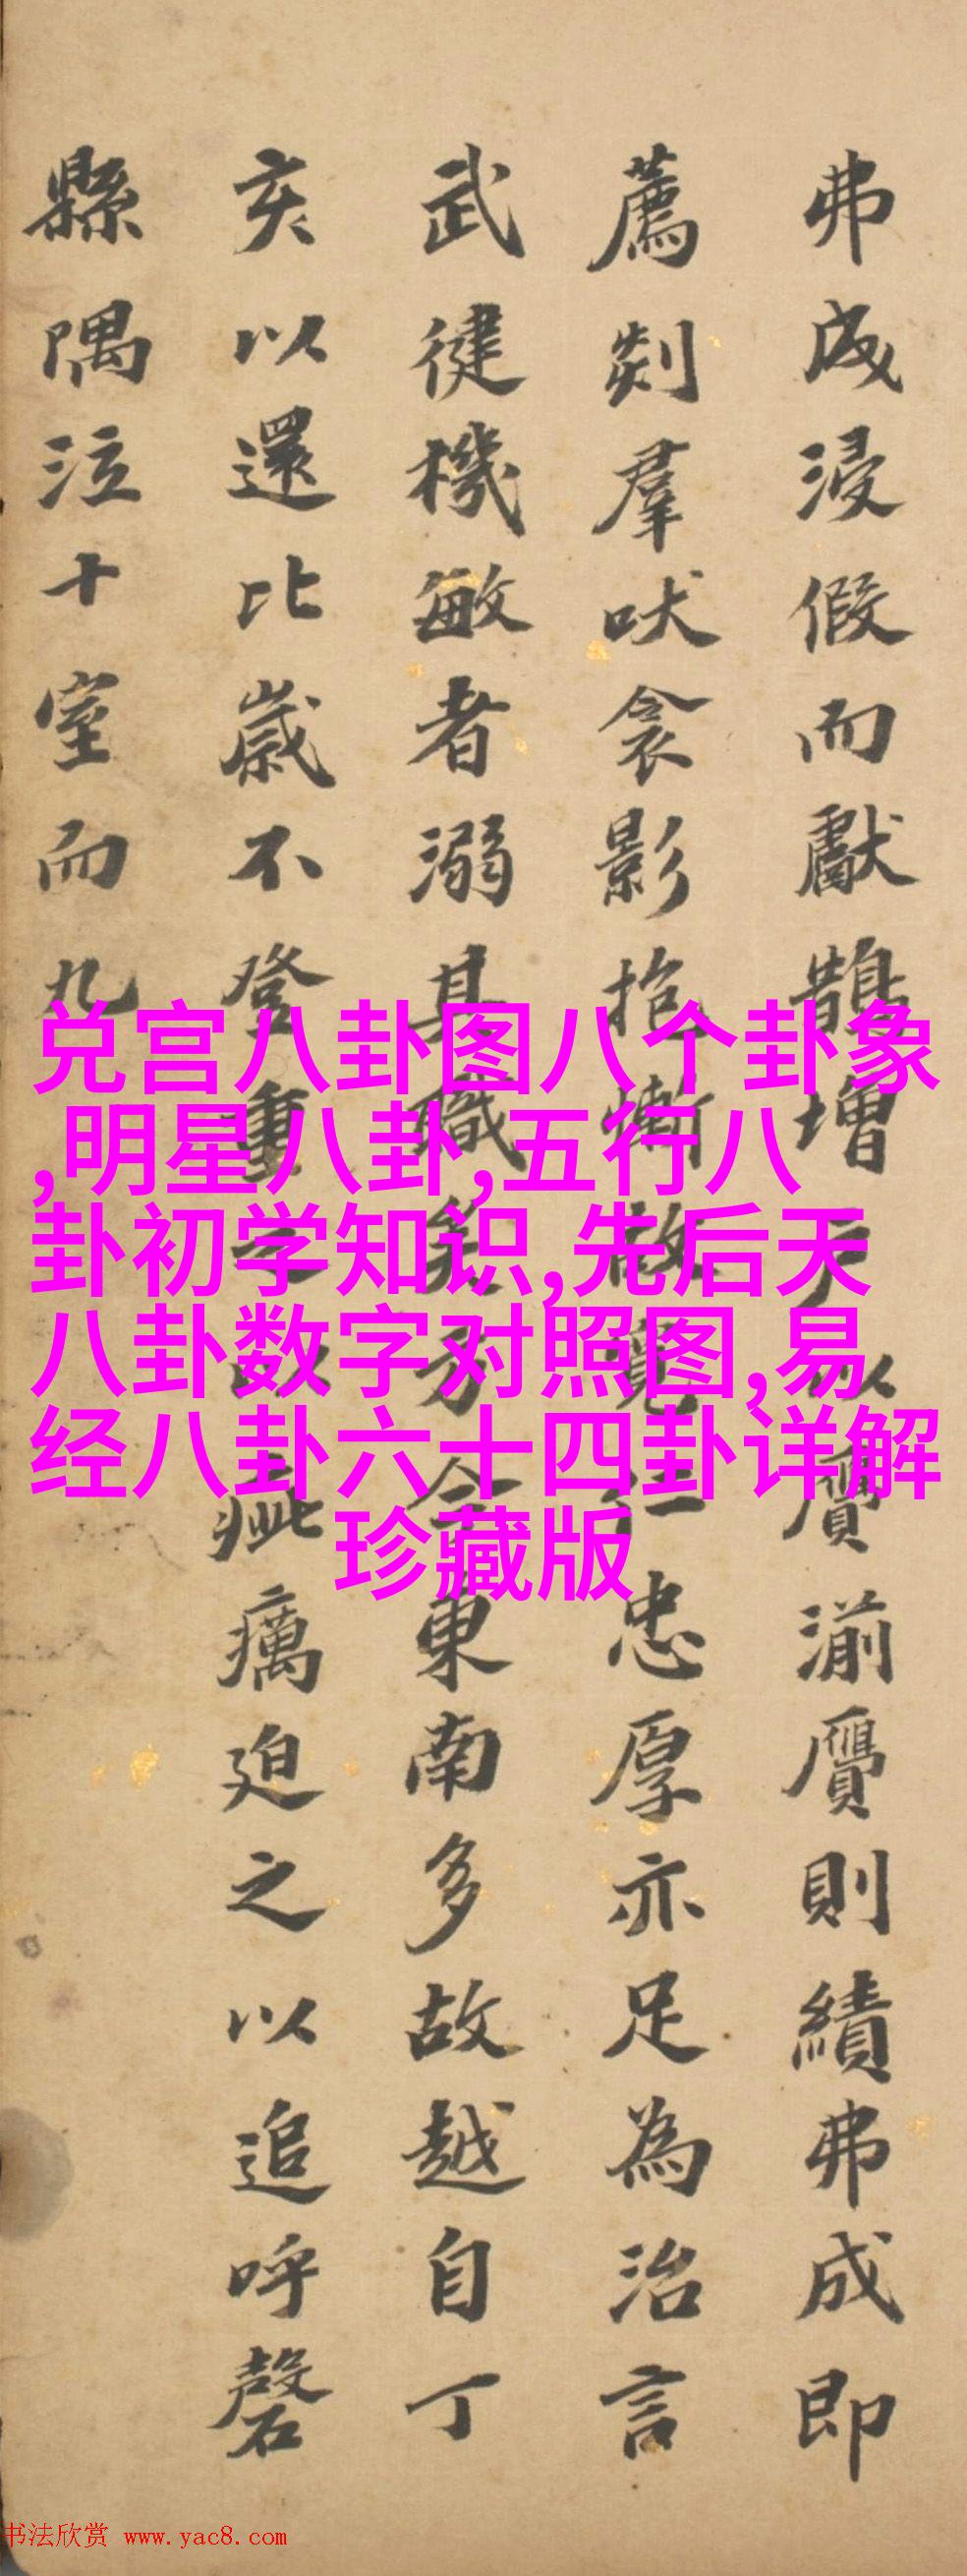 弗成浸假而獻鵲增戶以贗湔贗則績弗成即
薦剡羣吠衾影抱慚故寬仁忠厚亦足為治言
武健機敏者溺其職矣方今東南多故越自丁
亥以還比歲不登重之以疵癘迫之以追呼磬
縣隅泣十室而九
兑宫八卦图八个卦象
,明星八卦,五行八
卦初学知识,先后天
八卦数字对照图,易
经八卦六十四卦详解
珍藏版
书法欣赏 www.yac8.com